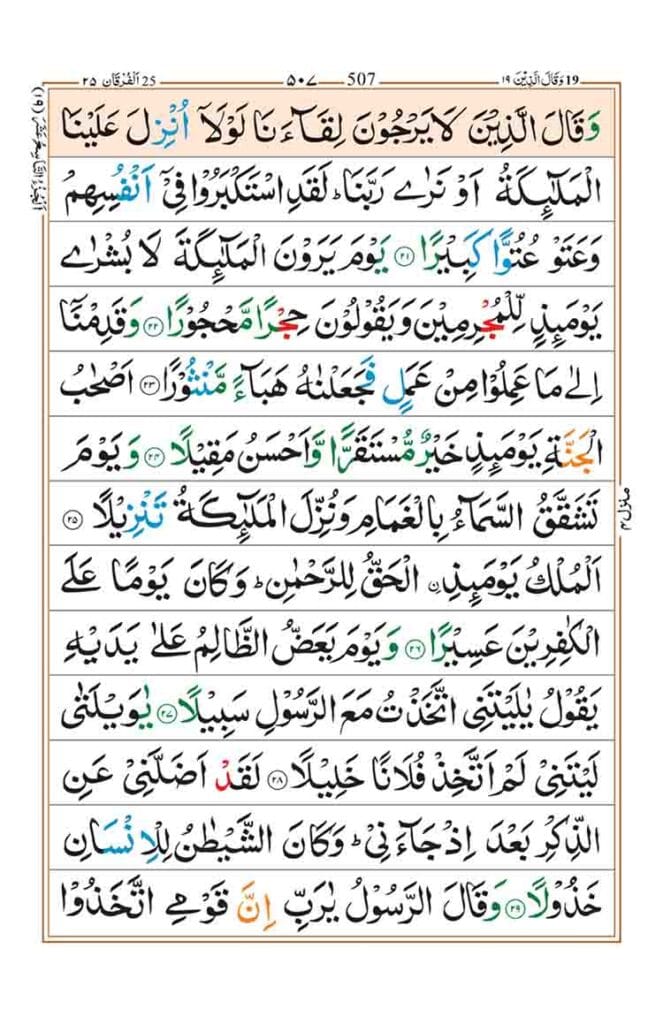 ١٩ وَقَالَ الَّذِيْنَ 19
507 ٥٠٧
٢٥ اَلْفُرْقَان 25
وَقَالَ الَّذِيْنَ لَا يَرْجُوْنَ لِقَآءَنَا لَوْلَاۤ اُنْزِلَ عَلَيْنَا
الْمَلٰٓئِكَةُ اَوْ نَرٰى رَبَّنَا ؕ لَقَدِ اسْتَكْبَرُوْا فِيْۤ اَنْفُسِهِمْ
وَعَتَوْ عُتُوًّا كَبِيْرًا ۝٢١ يَوْمَ يَرَوْنَ الْمَلٰٓئِكَةَ لَا بُشْرٰى
يَوْمَىِٕذٍ لِّلْمُجْرِمِيْنَ وَيَقُوْلُوْنَ حِجْرًا مَّحْجُوْرًا ۝٢٢ وَقَدِمْنَاۤ
اِلٰى مَا عَمِلُوْا مِنْ عَمَلٍ فَجَعَلْنٰهُ هَبَآءً مَّنْثُوْرًا ۝٢٣ اَصْحٰبُ
الْجَنَّةِ يَوْمَىِٕذٍ خَيْرٌ مُّسْتَقَرًّا وَّاَحْسَنُ مَقِيْلًا ۝٢٤ وَيَوْمَ
تَشَقَّقُ السَّمَآءُ بِالْغَمَامِ وَنُزِّلَ الْمَلٰٓئِكَةُ تَنْزِيْلًا ۝٢٥
اَلْمُلْكُ يَوْمَىِٕذِ ۨالْحَقُّ لِلرَّحْمٰنِ ؕ وَكَانَ يَوْمًا عَلَى
الْكٰفِرِيْنَ عَسِيْرًا ۝٢٦ وَيَوْمَ يَعَضُّ الظَّالِمُ عَلٰى يَدَيْهِ
يَقُوْلُ يٰلَيْتَنِى اتَّخَذْتُ مَعَ الرَّسُوْلِ سَبِيْلًا ۝٢٧ يٰوَيْلَتٰى
لَيْتَنِىْ لَمْ اَتَّخِذْ فُلَانًا خَلِيْلًا ۝٢٨ لَقَدْ اَضَلَّنِىْ عَنِ
الذِّكْرِ بَعْدَ اِذْ جَآءَنِىْ ؕ وَكَانَ الشَّيْطٰنُ لِلْاِنْسَانِ
خَذُوْلًا ۝٢٩ وَقَالَ الرَّسُوْلُ يٰرَبِّ اِنَّ قَوْمِى اتَّخَذُوْا
اَلْجُزْءُ التَّاسِعُ عَشَرَ (١٩)
منزل ٤